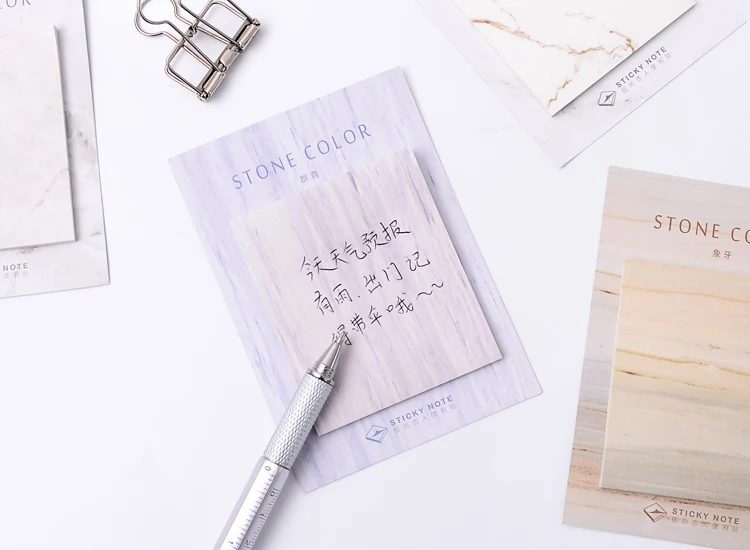 OR
NOTE
STONE COLOR
群青
今天天气预报
有雨.出门记
得带伞哦~~
STICKY NOTE
STICKY NOTE
STONE CO
象牙
STICKY NOTE